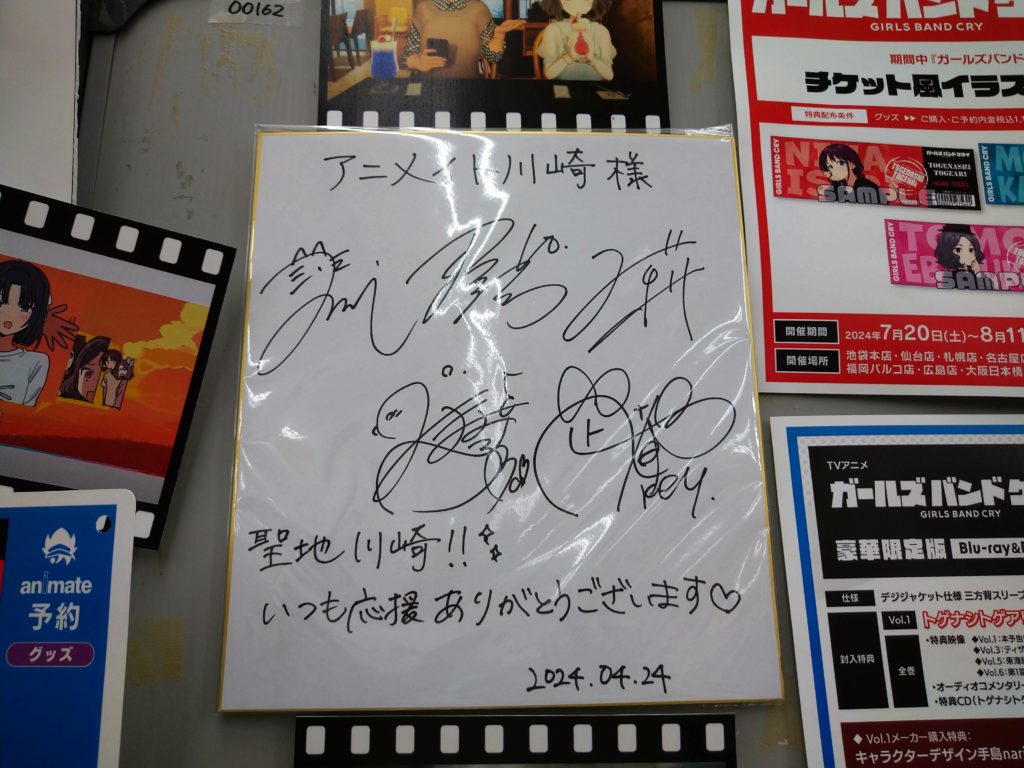 00162
アニメイト川崎様
聖地川崎!!
いつも応援ありがとうございます♡
2024.04.24
animate
予約
グッズ
GIRLS BAND CRY
期間中『ガールズバンド
チケット風イラス
特典配布条件
グッズ ▶▶ ご購入・ご予約内金税込1,1
GIRLS BAND CRY
NINA
SAMPLE
ガールズバンドクライ
TOGENASHI
TOGEARI
GIRLS BAND CRY
GIRLS BAND CRY
TOMO
SAMP
開催期間
2024年7月20日(土)～8月11
開催場所
池袋本店・仙台店・札幌店・名古屋
福岡パルコ店・広島店・大阪日本橋
TVアニメ
ガールズバンドク
GIRLS BAND CRY
豪華限定版 Blu-ray&
仕様
デジジャケット仕様 三方背スリーブ
封入特典
Vol.1
トゲナシトゲア
全巻
・特典映像
◆Vol.1:本予告
◆Vol.3:ティザ
◆Vol.5:東海
◆Vol.6:第1
・オーディオコメンタリー
・特典CD(トゲナシト
◆ Vol.1メーカー購入特典:
キャラクターデザイン手島nari